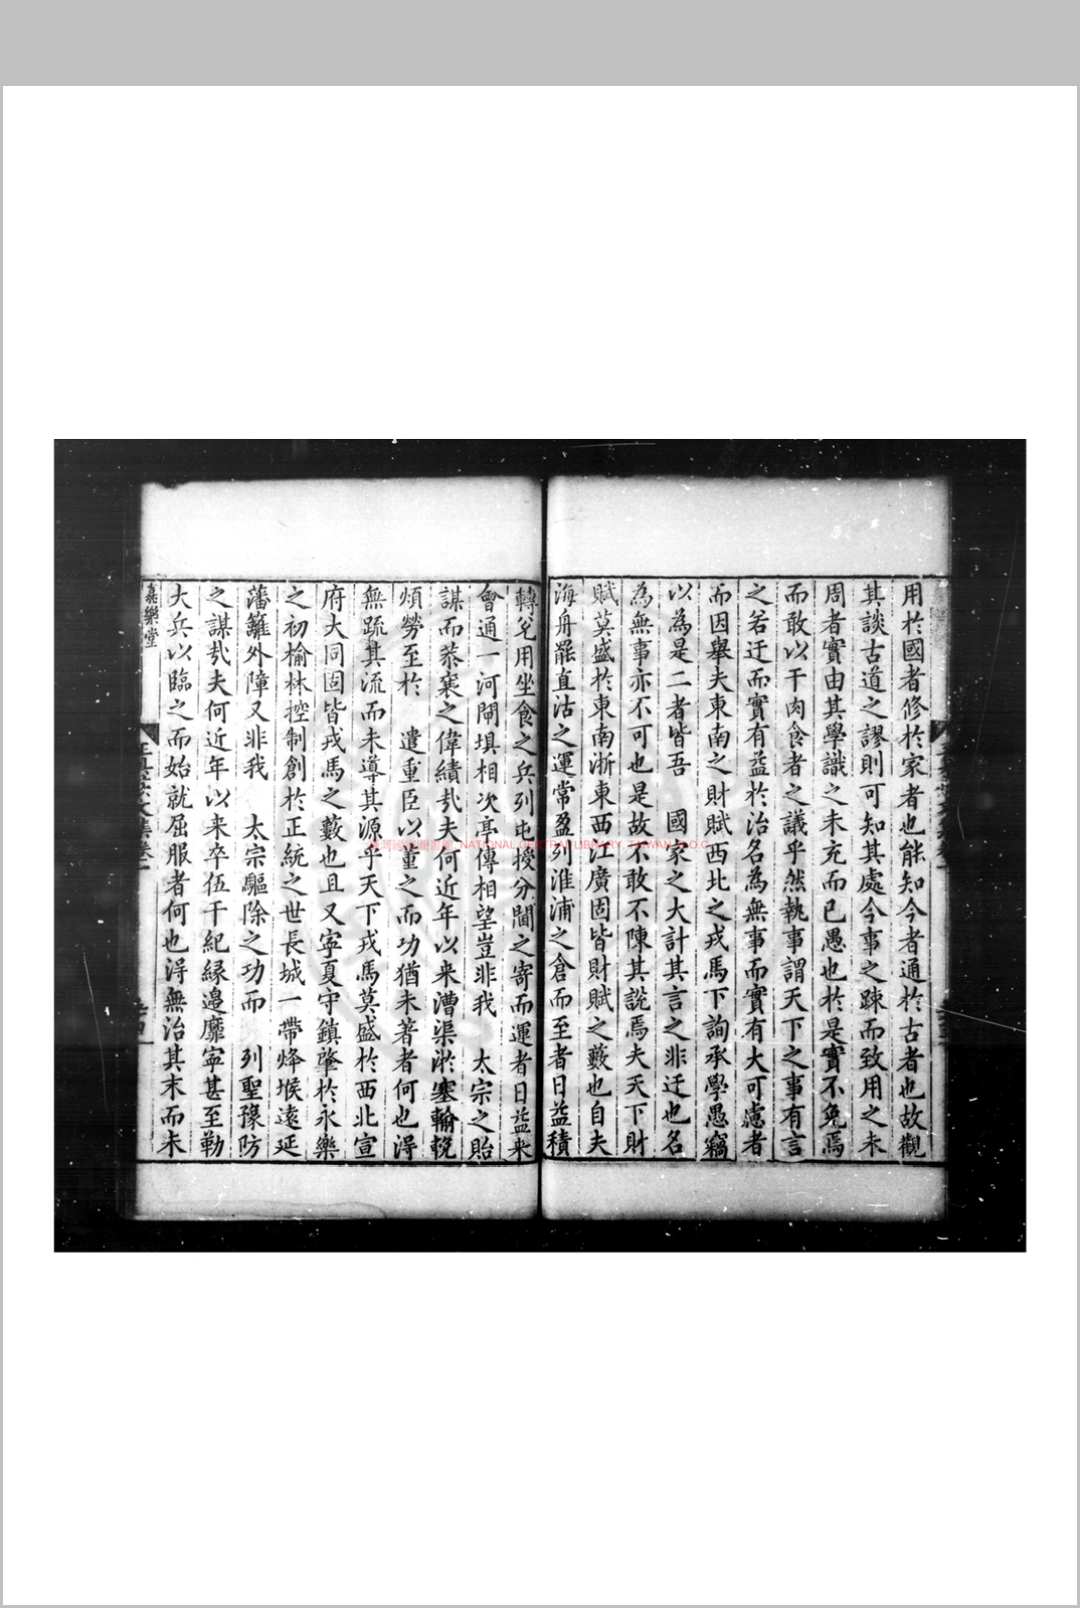 用於國者修於家者也能知今者通於古者也故觀
其談古道之謬則可知其處今事之疎而致用之未
周者實由其學識之未充而已愚也於是實不免焉
而敢以干肉食者之議乎然執事謂天下之事有言
之若迂而實有益於治名為無事而實有大可慮者
而因舉夫東南之財賦西北之戎馬下詢承學愚竊
以為是二者皆吾 國家之大計其言之非迂也名
為無事亦不可也是故不敢不陳其說焉夫天下財
賦莫盛於東南浙東西江廣固皆財賦之藪也自夫
海舟罷直沽之運常盈列淮浦之倉而至者日益積
轉兌用坐食之兵列屯授分閫之寄而運者日益来
會通一河閘埧相次亭傳相望豈非我 太宗之貽
謀而恭襄之偉績㢤夫何近年以来漕渠淤塞輸輓
煩勞至於 遣重臣以董之而功猶未著者何也淂
無疏其流而未導其源乎天下戎馬莫盛於西北宣
府大同固皆戎馬之藪也且又寧夏守鎮肇於永樂
之初榆林控制創於正統之世長城一帶烽堠遠延
藩籬外障又非我 太宗驅除之功而 列聖豫防
之謀㢤夫何近年以来卒伍干紀緣邊靡寧甚至勒
大兵以臨之而始就屈服者何也淂無治其末而未
嘉樂堂
NATIONAL CENTRAL LIBRARY, TAIWAN, R.O.C